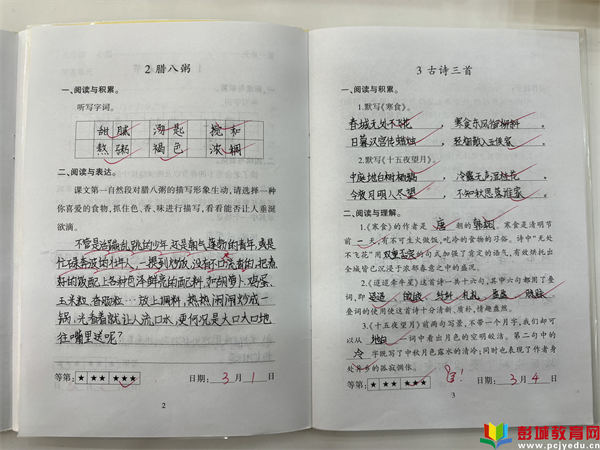 2 腊八粥
一、阅读与积累。
听写字词。
甜腻 汤匙 搅和
熬粥 褐色 浓稠
二、阅读与表达。
课文第一自然段对腊八粥的描写形象生动,请选择一种
你喜爱的食物,抓住色、香、味进行描写,看看能否让人垂涎
欲滴。
不管是活蹦乱跳的少年,还是朝气蓬勃的青年,或是
忙碌奔波的中年人,一提到炒饭,没有不口流清的。把煮
好的饭配上各种色泽鲜亮的配料,如胡萝卜、鸡蛋、
玉米粒、香肠粒……放上调料,热热闹闹炒成一
锅,光看着就让人流口水,更何况是大口大口地
往嘴里送呢?
等第: ★ ★★ ★★★ 日期: 3 月 1 日
2
3 古诗三首
一、阅读与积累。
1.默写《寒食》。
春城无处不飞花, 寒食东风御柳斜。
日暮汉宫传蜡烛, 轻烟散入五侯家。
2.默写《十五夜望月》。
中庭地白树栖鸦, 冷露无声湿桂花。
今夜月明人尽望, 不知秋思落谁家。
二、阅读与理解。
1.《寒食》的作者是 唐 朝的 韩翃 。寒食是清明节
前一天,有不可生火做饭,吃冷的食物的习俗。诗中“无处
不飞花”用双重否定的句式加强了肯定的语气,有效烘托出
全城皆已沉浸于浓郁春意之中的盛况。
2.《迢迢牵牛星》这首诗一共十六句,其中六句都用了叠
词,即 迢迢、皎皎、纤纤、札札、盈盈、脉脉
叠词的使用使这首诗十分清新、质朴,情趣盎然。
3.《十五夜望月》前两句写景,不带一个月字,我们却可
以从 地白 一词中看出月色的空明皎洁。第二句中的
冷 字既写了中秋月色露水的清冷;同时也表现了作者身
处异乡的孤寂惆怅。
等第: ★ ★★ ★★★ 日期: 3 月 4 日
3
彭城教育网
www.pcjyedu.cn